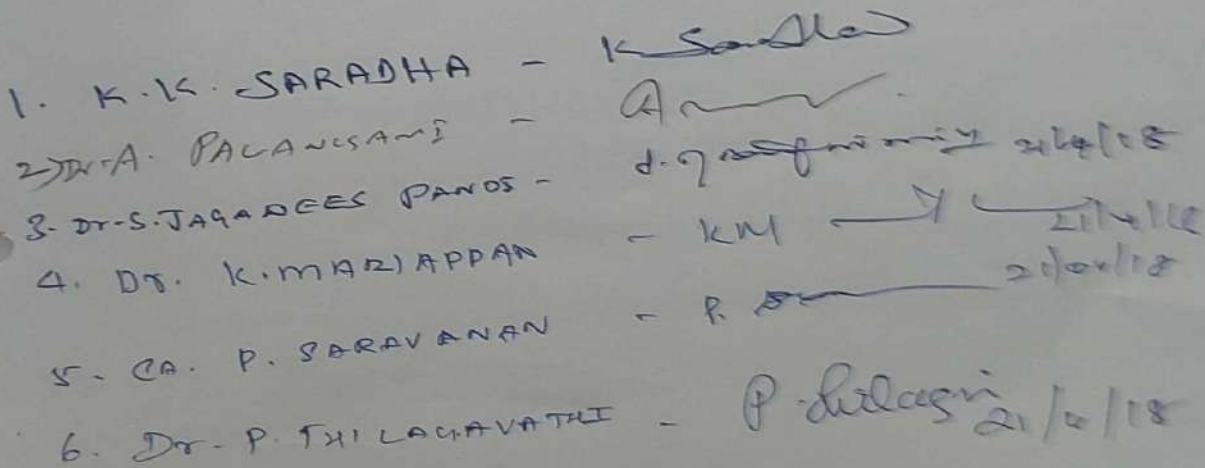 1. K.K. SARADHA - K Saradha
2) Dr. A. PALANISAMI -
3. Dr. S. JAGADEES PANDS - 21/4/18
4. Dr. K. MARIAPPAN - KM 21/4/18
5. CA. P. SARAVANAN - P. 21/04/18
6. Dr. P. THILAGAVATHI - P. 21/4/18